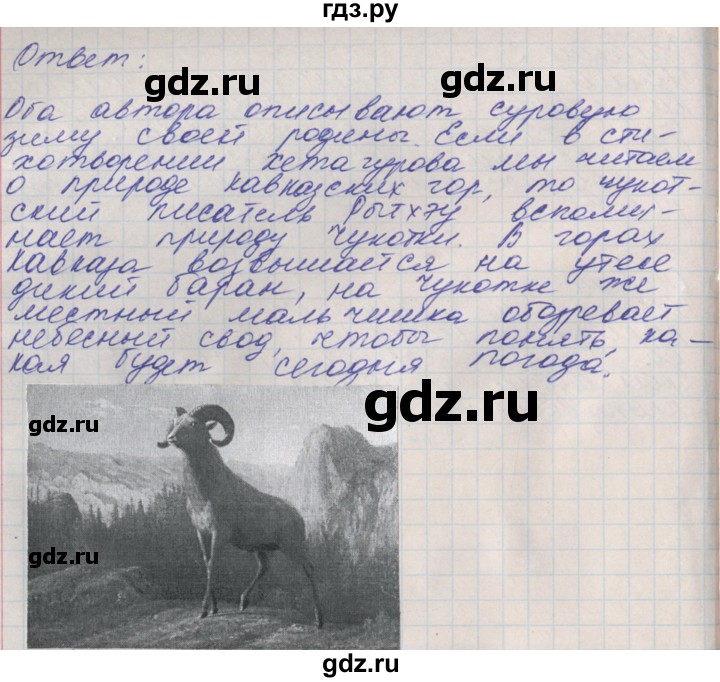 гдз.ру
Ответ:
gdz.ru
gdz.ru
Оба автора описывают суровую
зиму своей родины. Если в сти-
хотворении Хетагурова мы читаем
о природе Кавказских гор, то чукот-
ский писатель Рытхэу вспоми-
нает природу Чукотки. В горах
Кавказа возвышается на утесе
дикий баран, на Чукотке же
местный мальчишка обозревает
небесный свод, чтобы понять, ка-
кая будет сегодня погода.
gdz.ru
gdz.ru
gdz.ru
gdz.ru
gdz.ru
gdz.ru